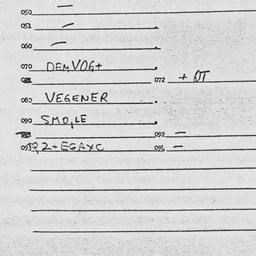 050 —
051 –
060 –
070 DEMVOG+
072 + DT
080 VEGENER
090 SMO,LE
092 –
095 –